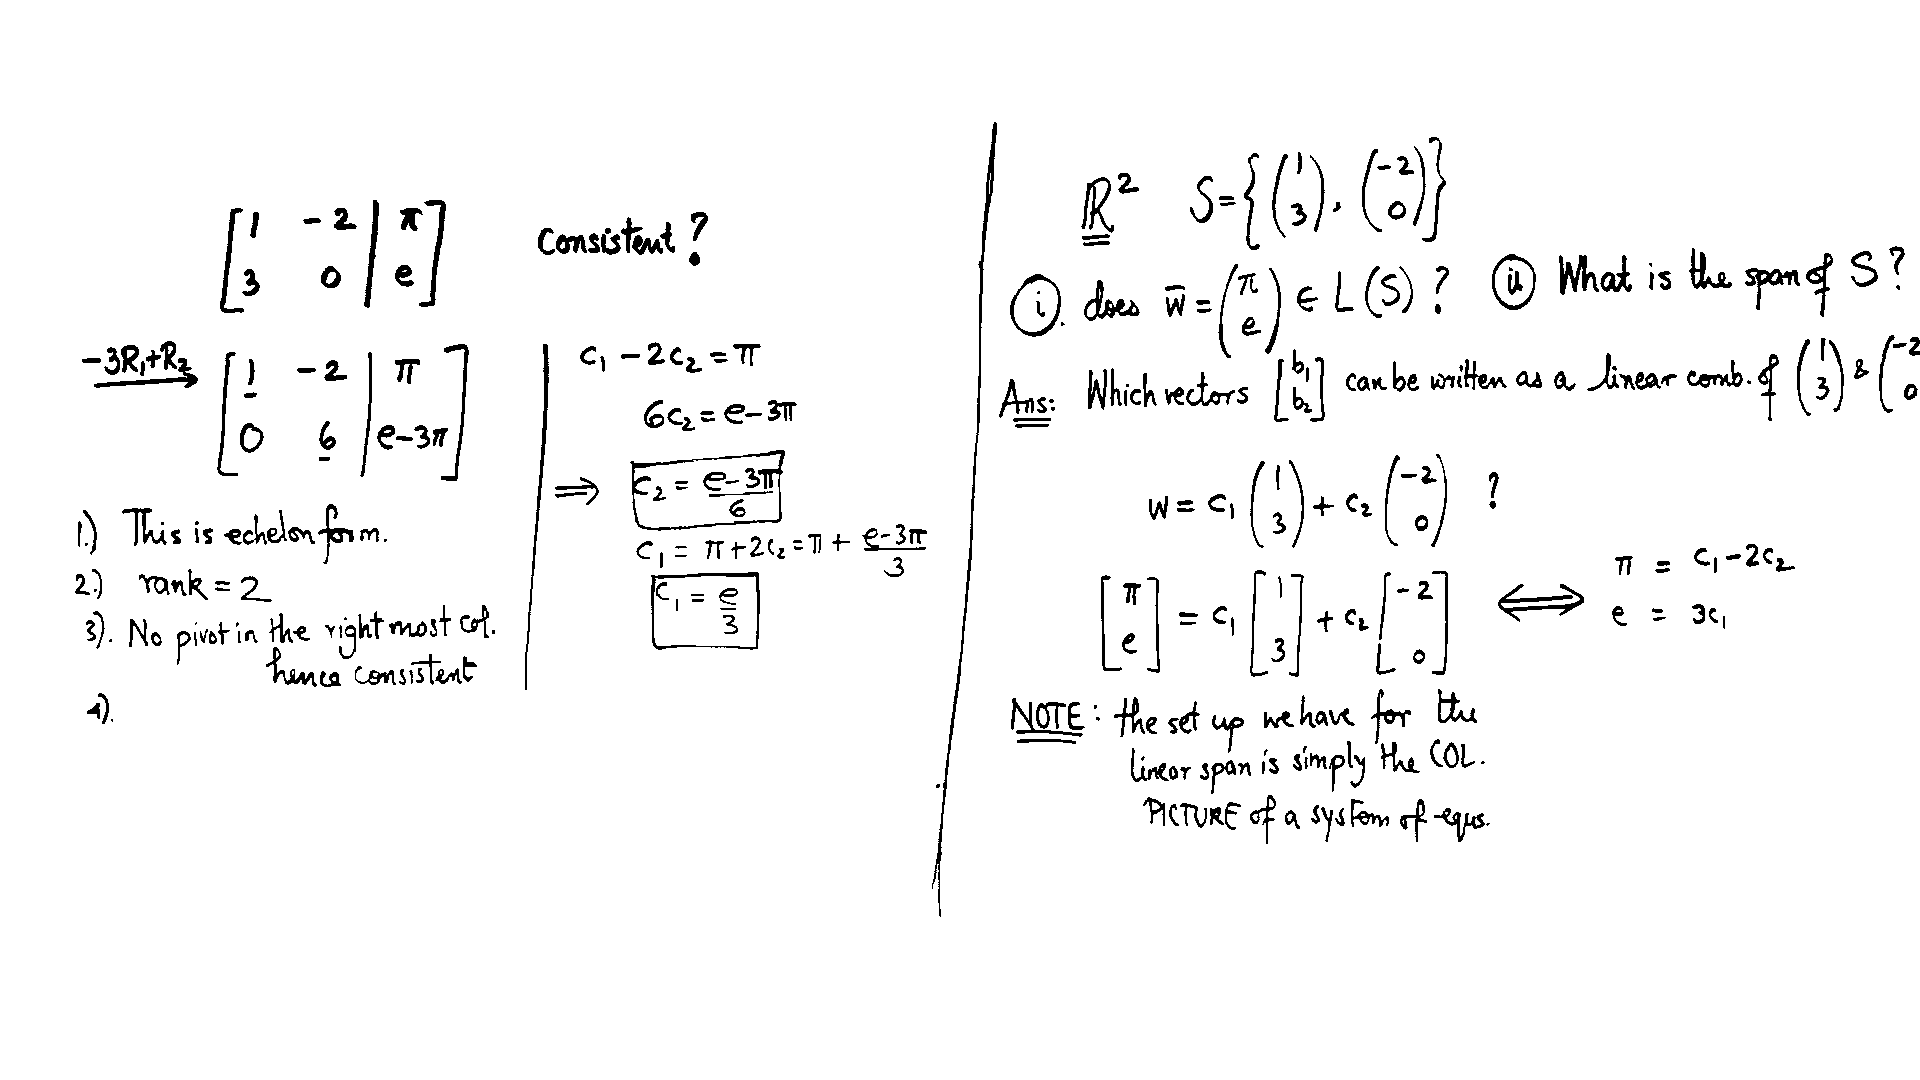 [ 1 -2 | π ]
[ 3 0 | e ]
Consistent?
-3R₁+R₂ →
[ 1 -2 | π ]
[ 0 6 | e-3π ]
1.) This is echelon form.
2.) rank = 2
3). No pivot in the right most col.
hence consistent
4).
c₁ - 2c₂ = π
6c₂ = e-3π
⟹ c₂ = (e-3π)/6
c₁ = π+2c₂ = π + (e-3π)/3
c₁ = e/3
ℝ² S = { (1 3), (-2 0) }
(i). does w̄ = (π e) ∈ L(S)? (ii) What is the span of S?
Ans: Which vectors [b₁ b₂] can be written as a linear comb. of (1 3) & (-2 0
w = c₁ (1 3) + c₂ (-2 0) ?
[π e] = c₁ [1 3] + c₂ [-2 0] ⟺ π = c₁-2c₂
e = 3c₁
NOTE: the set up we have for the
linear span is simply the COL.
PICTURE of a system of equs.